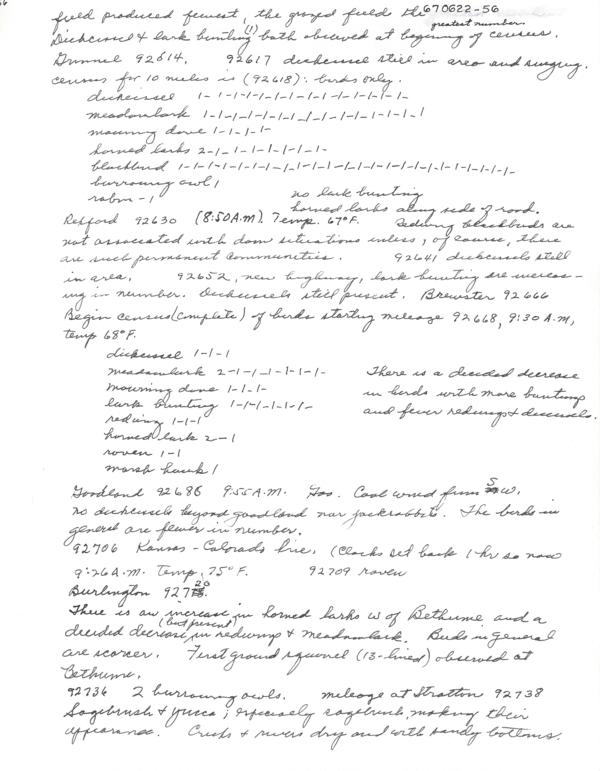 670622-56
field produced fewest, the grazed field the greatest number.
Dickcissel & lark bunting (1) both observed at begining of census.
Grinnel 92614. 92617 dickcissel still in area and singing.
Census for 10 miles is (92618): birds only.
dickcissel 1-1-1-1-1-1-1-1-1-1-1-1-1-1-1-
meadowlark 1-1-1-1-1-1-1-1-1-1-1-1-1-1-1-1
mourning dove 1-1-1-1-
horned larks 2-1-1-1-1-1-1-1-
blackbird 1-1-1-1-1-1-1-1-1-1-1-1-1-1-1-1-1-1-1-1-1-1-
burrowing owl 1
robin - 1 no lark bunting
horned larks along side of road.
Rexford 92630 (8:50 A.M.) Temp. 67°F. Redwing blackbirds are
not associated with dam situations unless, of course, there
are such permanent communities. 92641 dickcissels still
in area. 92652, new highway, lark bunting are increas-
ing in number. Dickcissels still present. Brewster 92666
Begin census (complete) of birds starting mileage 92668, 9:30 A.M,
temp 68°F.
dickcissel 1-1-1
meadowlark 2-1-1-1-1-1-1-
mourning dove 1-1-1-
lark bunting 1-1-1-1-1-1-
redwing 1-1-1
horned lark 2-1
roven 1-1
marsh hawk 1
There is a decided decrease
in birds with more buntings
and fewer redwings & dickcissels.
Goodland 92686 9:55 A.M. Gas. Cool wind from SW.
no dickcissels beyond goodland nor jackrabbits. The birds in
general are fewer in number.
92706 Kansas-Colorado line. (Clocks set back 1 hr so now
9:26 A.M. Temp. 75°F. 92709 roven
Burlington 92720.
There is an increase in horned larks W of Bethune, and a
decided decrease (but present) in redwings & meadowlark. Birds in general
are scarcer. First ground squirrel (13-lined) observed at
Bethune.
92736 2 burrowing owls. mileage at Stratton 92738
Sagebrush & yucca; especially sagebrush, making their
appearance. Creeks & rivers dry and with sandy bottoms.